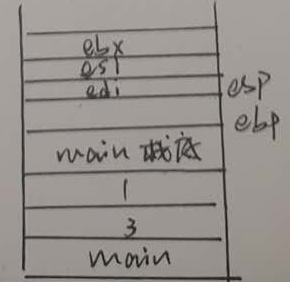 ebx
esi
edi
esp
ebp
main 栈底
1
3
main